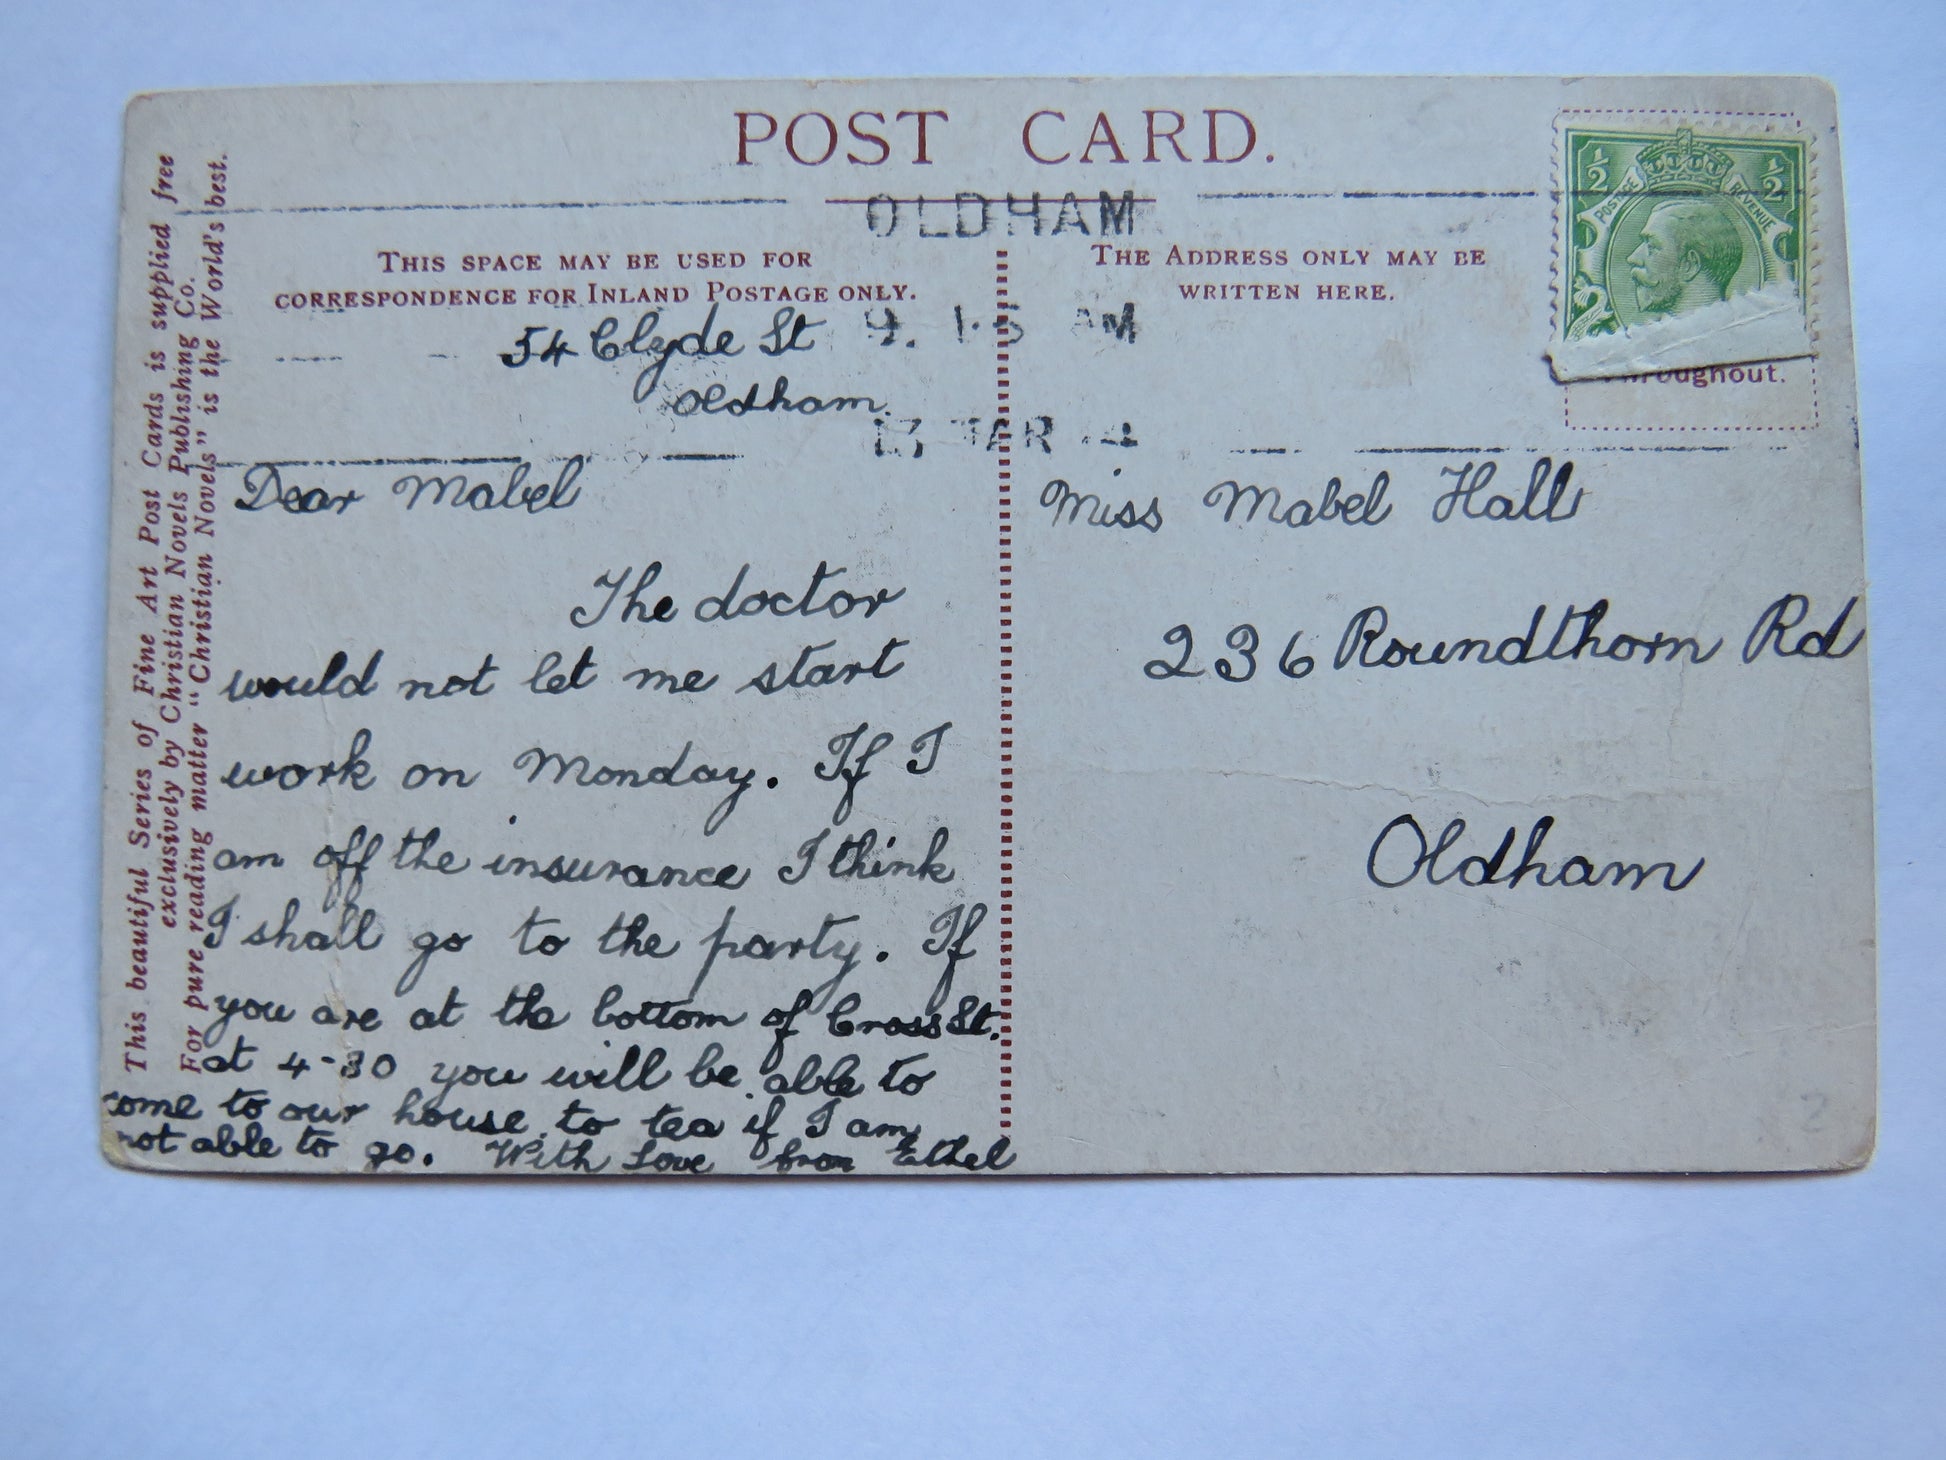 POST CARD.
OLDHAM
THIS SPACE MAY BE USED FOR
CORRESPONDENCE FOR INLAND POSTAGE ONLY.
THE ADDRESS ONLY MAY BE
WRITTEN HERE.
1/2 1/2
POSTAGE REVENUE
Throughout.
AM
54 Clyde St
Oldham.
Dear Mabel
The doctor
would not let me start
work on Monday. If I
am off the insurance I think
I shall go to the party. If
you are at the bottom of Cross St.
at 4-30 you will be able to
come to our house to tea if I am
not able to go. With Love from Ethel
Miss Mabel Hall
236 Roundthorn Rd
Oldham
2
This beautiful Series of Fine Art Post Cards is supplied free
exclusively by Christian Novels Publishing Co.
For pure reading matter "Christian Novels" is the World's best.